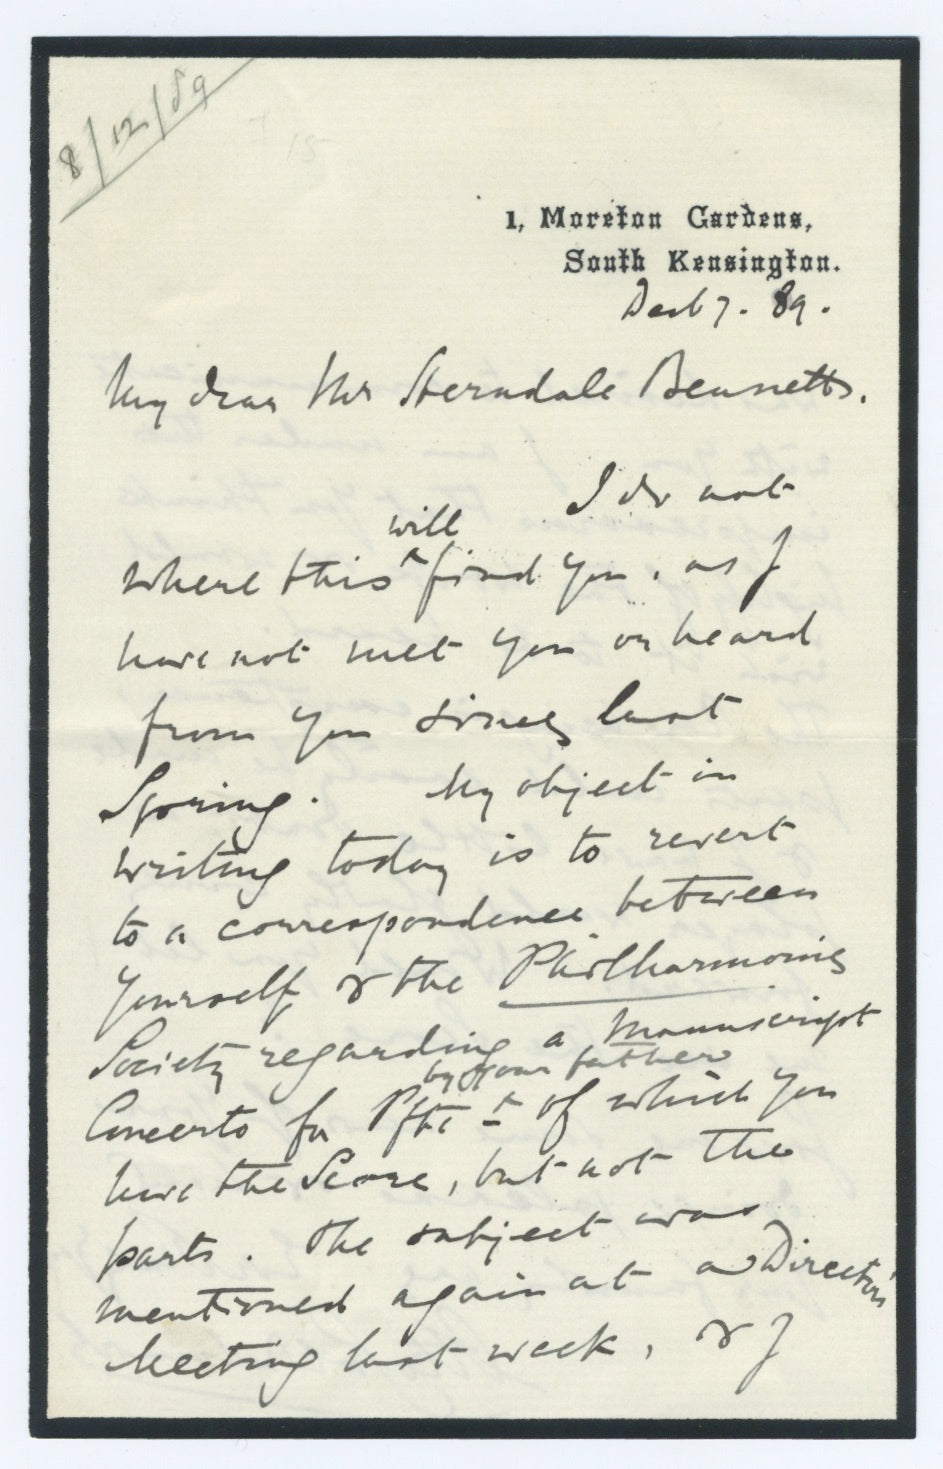 8/12/89
1, Moreton Gardens,
South Kensington.
Dec 7. 89.
My dear Mr Sterndale Bennett,
I do not
will
where this ^ find you, as I
have not met you or heard
from you since last
Spring. My object in
writing today is to revert
to a correspondence between
yourself & the Philharmonic
Society regarding a Manuscript
by your father
Concerto for Pfte ^ of which you
have the Score, but not the
parts. The subject was
mentioned again at a Directors
Meeting last week, & I